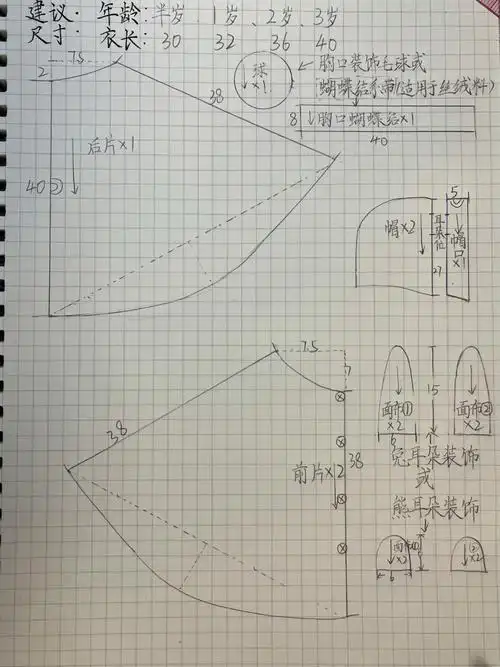 建议: 年龄: 半岁、1岁、2岁、3岁
尺寸: 衣长: 30 32 36 40
7.5
2
38
球
×1
胸口装饰毛球或
蝴蝶结系带(适用于丝绒料)
8
胸口蝴蝶结×1
40
后片×1
40
帽×2
耳朵位
27
5
帽口×1
7.5
7
38
前片×2
38
面布①
×2
6
15
面布②
×2
兔耳朵装饰
或
熊耳朵装饰
×2
6
②
×2